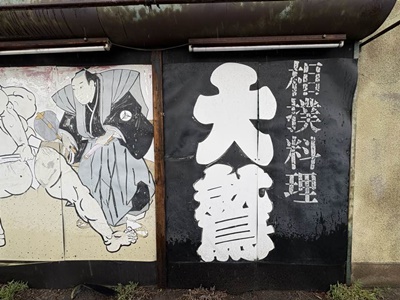 相撲料理
大鷲